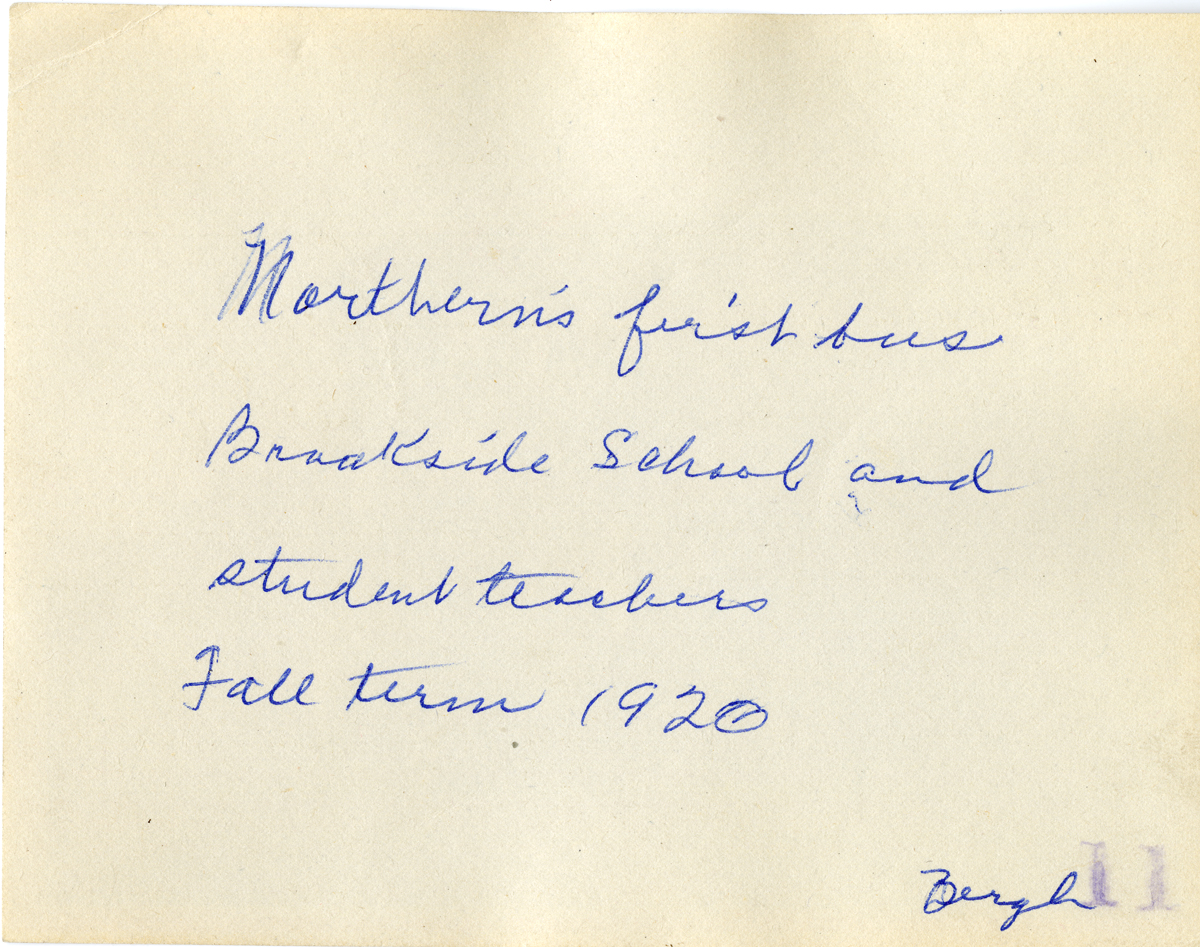 Northern's first bus
Brookside School and
student teachers
Fall term 1920
Bergh 11